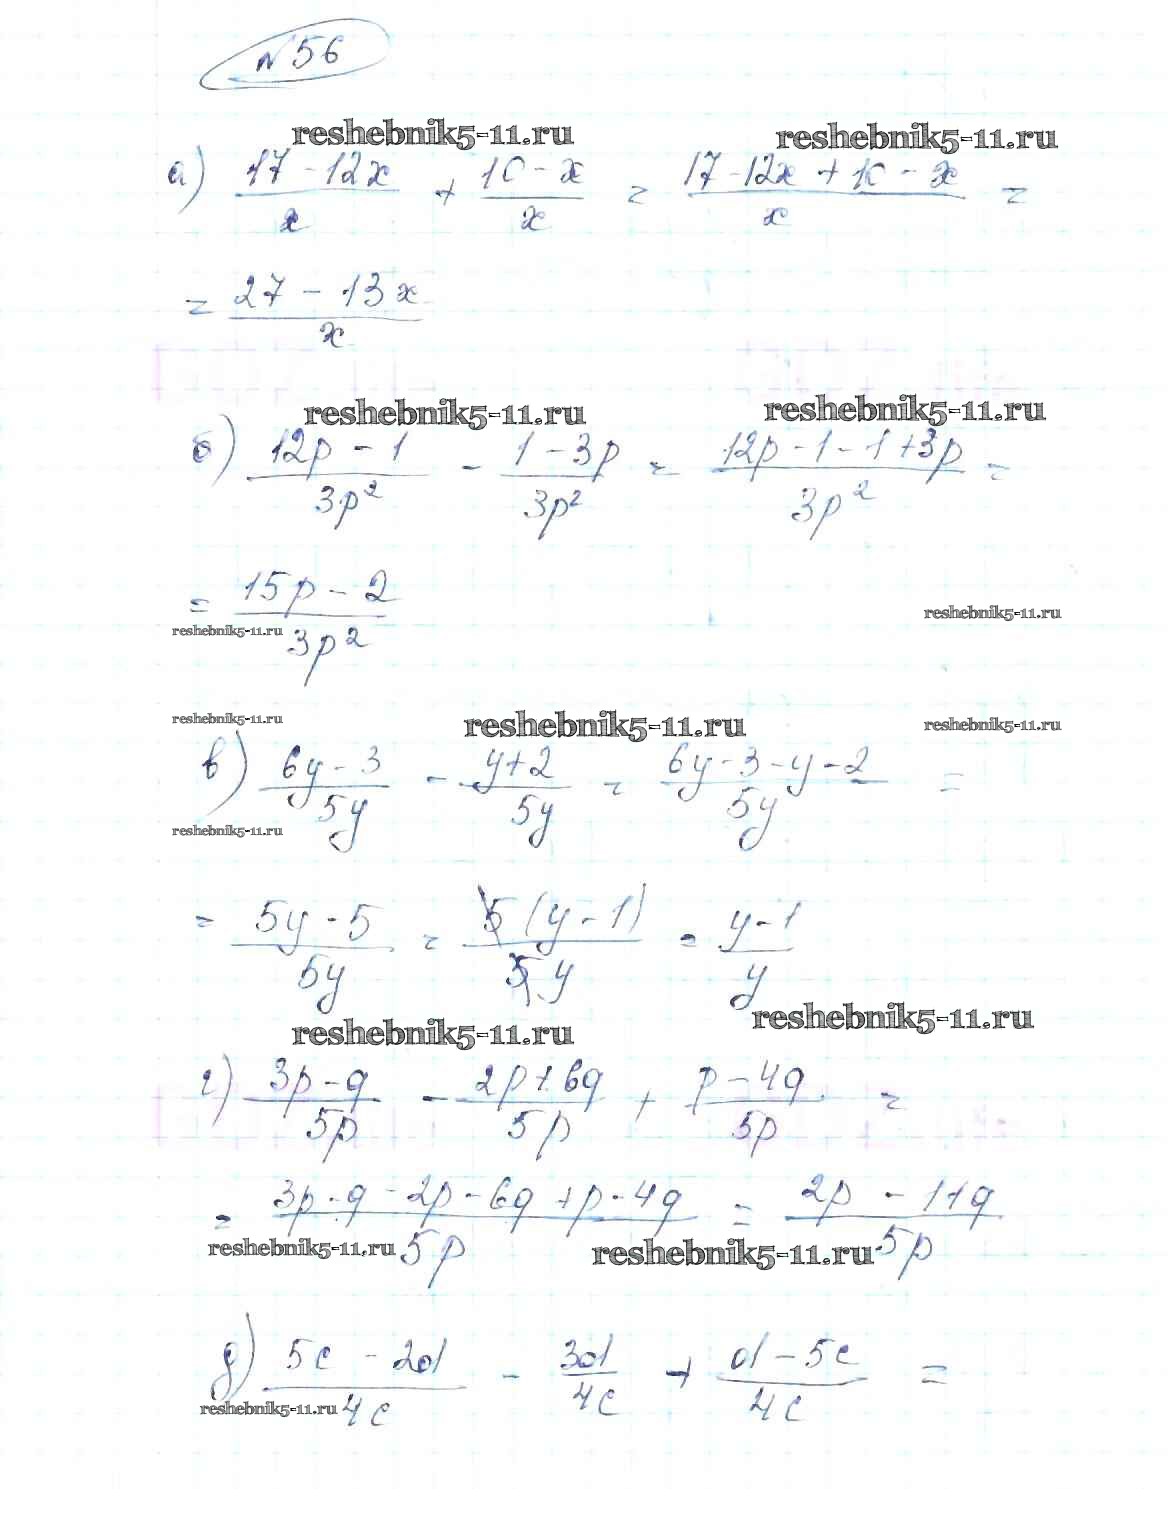 №56
reshebnik5-11.ru reshebnik5-11.ru
а) (17 - 12x)/x + (10 - x)/x = (17 - 12x + 10 - x)/x =
= (27 - 13x)/x
reshebnik5-11.ru reshebnik5-11.ru
б) (12p - 1)/(3p²) - (1 - 3p)/(3p²) = (12p - 1 - 1 + 3p)/(3p²) =
= (15p - 2)/(3p²)
reshebnik5-11.ru reshebnik5-11.ru
reshebnik5-11.ru reshebnik5-11.ru reshebnik5-11.ru
в) (6y - 3)/(5y) - (y + 2)/(5y) = (6y - 3 - y - 2)/(5y) =
reshebnik5-11.ru
= (5y - 5)/(5y) = (5(y - 1))/(5y) = (y - 1)/y
reshebnik5-11.ru reshebnik5-11.ru
г) (3p - q)/(5p) - (2p + 6q)/(5p) + (p - 4q)/(5p) =
= (3p - q - 2p - 6q + p - 4q)/(5p) = (2p - 11q)/(5p)
reshebnik5-11.ru reshebnik5-11.ru
д) (5c - 2d)/(4c) - (3d)/(4c) + (d - 5c)/(4c) =
reshebnik5-11.ru